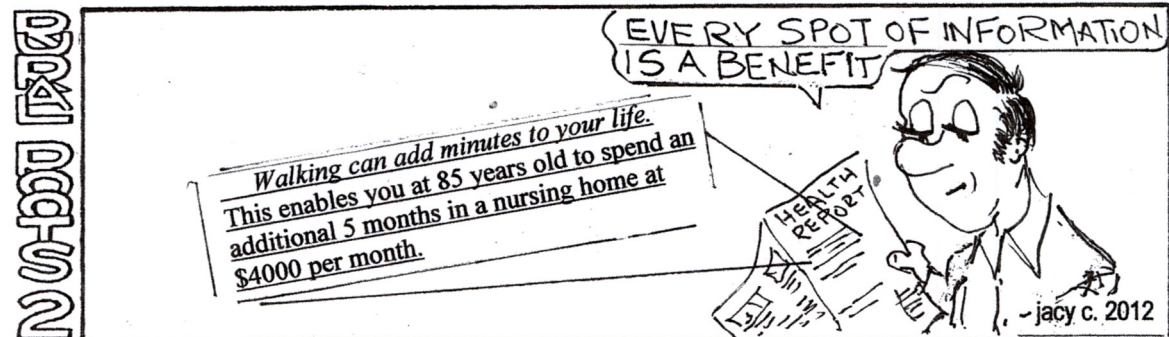 EVERY SPOT OF INFORMATION
IS A BENEFIT
Walking can add minutes to your life.
This enables you at 85 years old to spend an
additional 5 months in a nursing home at
$4000 per month.
HEALTH
REPORT
~ jacy c. 2012